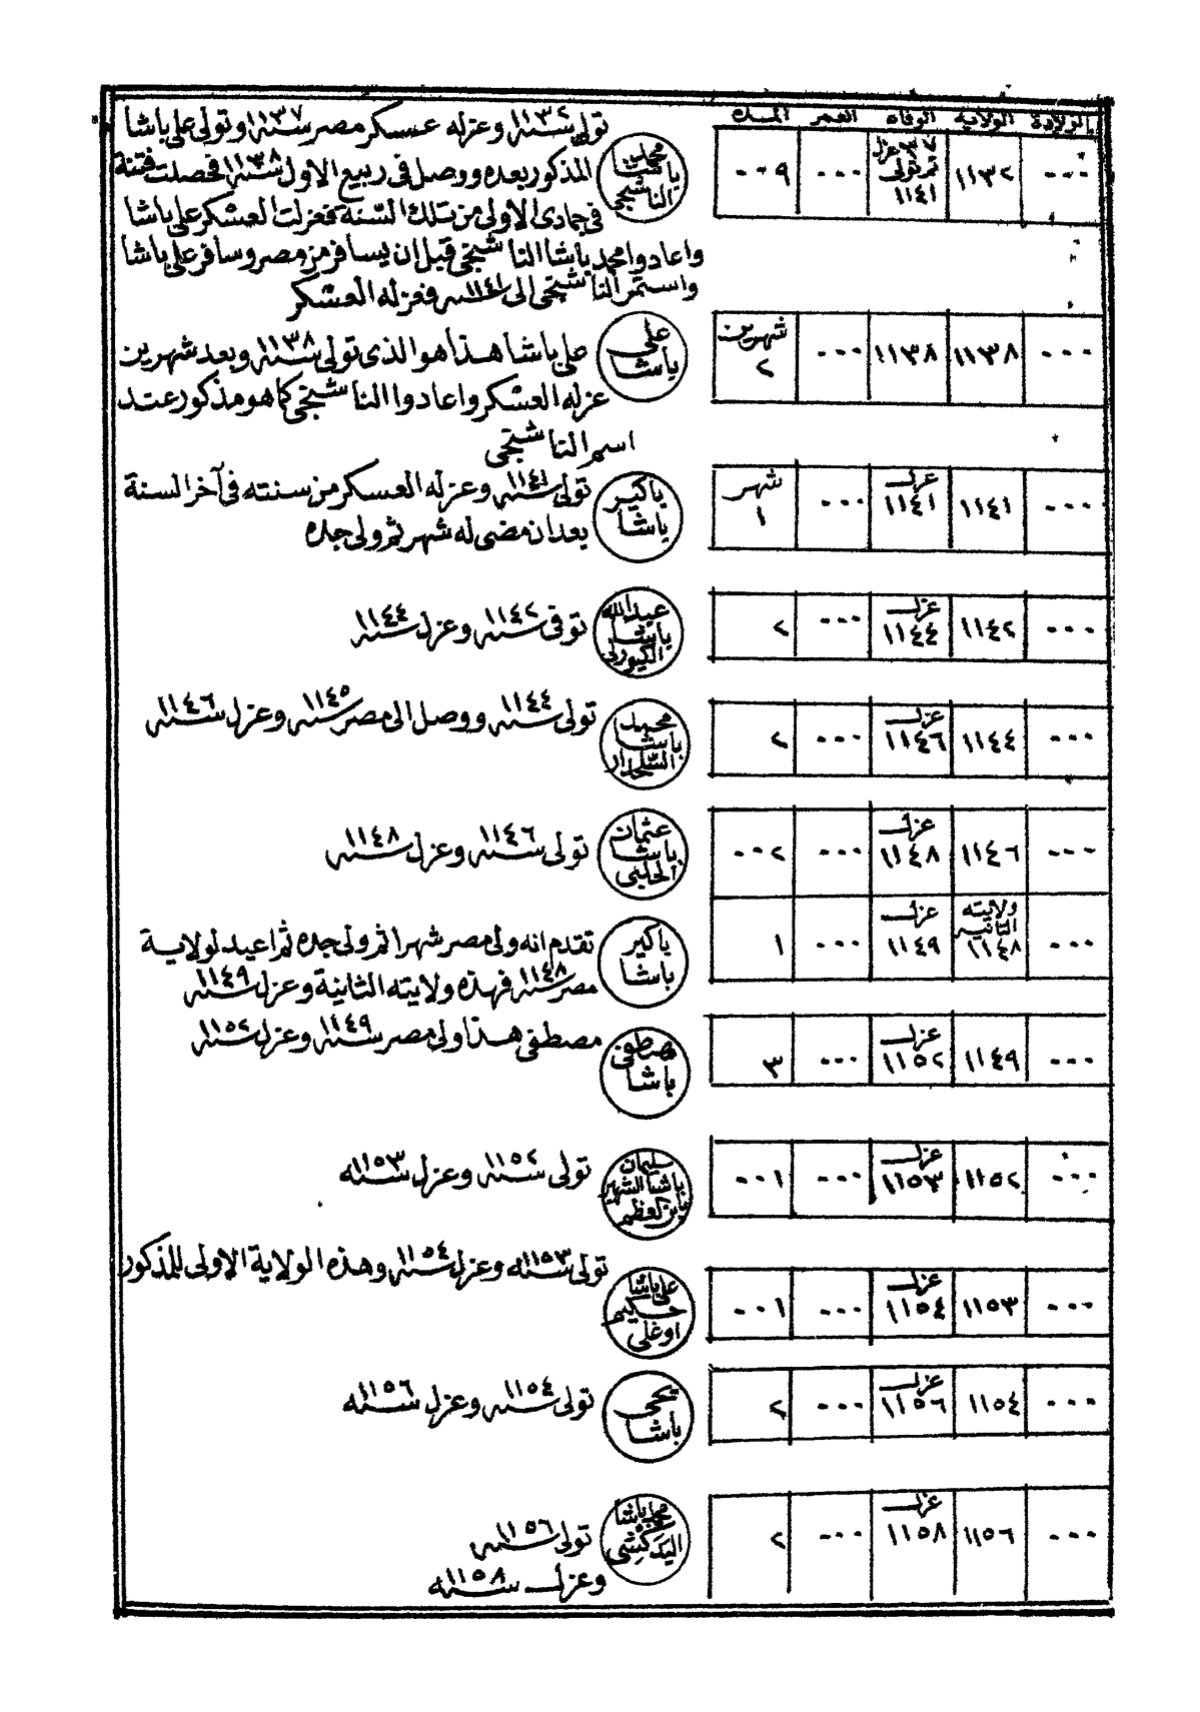 الولادة الولاية الوفاة العمر المدة
٠٠٠ ١١٣٢ ٣٧ عزل ثم تولى ١١٤١ ٠٠٠ ٠٠٩
محمد باشا النشانجي
تولى سنة ١١٣٢ وعزله عسكر مصر سنة ١١٣٧ وتولى على باشا
المذكور بعده ووصل فى ربيع الاول سنة ١١٣٨ فحصلت فتنة
فى جمادى الاولى من تلك السنة فعزلت العسكر على باشا
واعادوا محمد باشا النا شنجى قبل ان يسافر من مصر وسافر على باشا
واستمر النا شنجى الى سنة ١١٤١ فعزله العسكر
٠٠٠ ١١٣٨ ١١٣٨ ٠٠٠ شهرين ٢
على باشا
على باشا هذا هو الذى تولى سنة ١١٣٨ وبعد شهرين
عزله العسكر واعادوا النا شنجى كما هو مذكور عند
اسم النا شنجى
٠٠٠ ١١٤١ عزل ١١٤١ ٠٠٠ شهر ١
باكير باشا
تولى سنة ١١٤١ وعزله العسكر من سنته فى آخر السنة
بعد ان مضى له شهر ثم ولى جده
٠٠٠ ١١٤٢ عزل ١١٤٤ ٠٠٠ ٢
عبد الله باشا الكبورلى
توفى سنة ١١٤٢ وعزل سنة ١١٤٤
٠٠٠ ١١٤٤ عزل ١١٤٦ ٠٠٠ ٢
محمد باشا السلحدار
تولى سنة ١١٤٤ ووصل الى مصر سنة ١١٤٥ وعزل سنة ١١٤٦
٠٠٠ ١١٤٦ عزل ١١٤٨ ٠٠٠ ٠٠٢
عثمان باشا الحلبى
تولى سنة ١١٤٦ وعزل سنة ١١٤٨
٠٠٠ ولايته الثانيه ١١٤٨ عزل ١١٤٩ ٠٠٠ ١
باكير باشا
تقدم انه ولى مصر شهرا ثم ولى جده ثم اعيد لولاية
مصر سنة ١١٤٨ فهذه ولايته الثانية وعزل سنة ١١٤٩
٠٠٠ ١١٤٩ عزل ١١٥٢ ٠٠٠ ٣
مصطفى باشا
مصطفى هذا ولى مصر سنة ١١٤٩ وعزل سنة ١١٥٢
٠٠٠ ١١٥٢ عزل ١١٥٣ ٠٠٠ ٠٠١
سليمان باشا الشهير بابن العظم
تولى سنة ١١٥٢ وعزل سنة ١١٥٣
٠٠٠ ١١٥٣ عزل ١١٥٤ ٠٠٠ ٠٠١
على باشا حكيم اوغلى
تولى سنة ١١٥٣ وعزل سنة ١١٥٤ وهذه الولاية الاولى للمذكور
٠٠٠ ١١٥٤ عزل ١١٥٦ ٠٠٠ ٢
يحيى باشا
تولى سنة ١١٥٤ وعزل سنة ١١٥٦
٠٠٠ ١١٥٦ عزل ١١٥٨ ٠٠٠ ٢
محمد باشا اليدكشى
تولى سنة ١١٥٦
وعزل سنة ١١٥٨